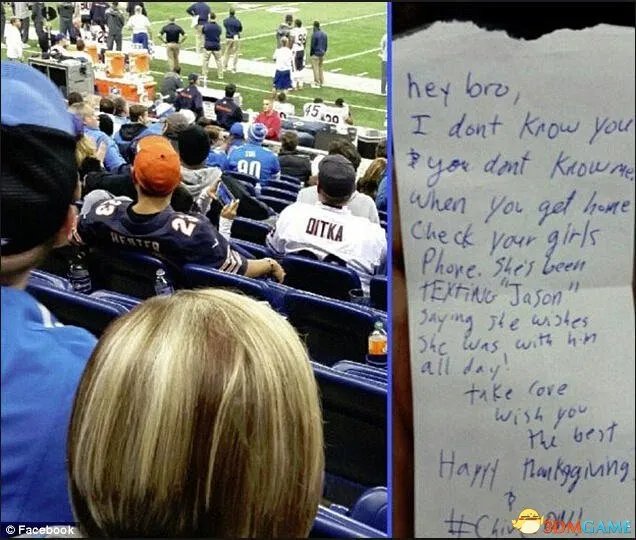 HESTER
DITKA
90
© Facebook
hey bro,
I dont know you
& you dont know me,
when you get home
Check your girls
Phone. She's been
TEXTING "Jason"
Saying she wishes
She was with him
all day!
take Care
wish you
the best
Happy thanksgiving
&
3DMGAME